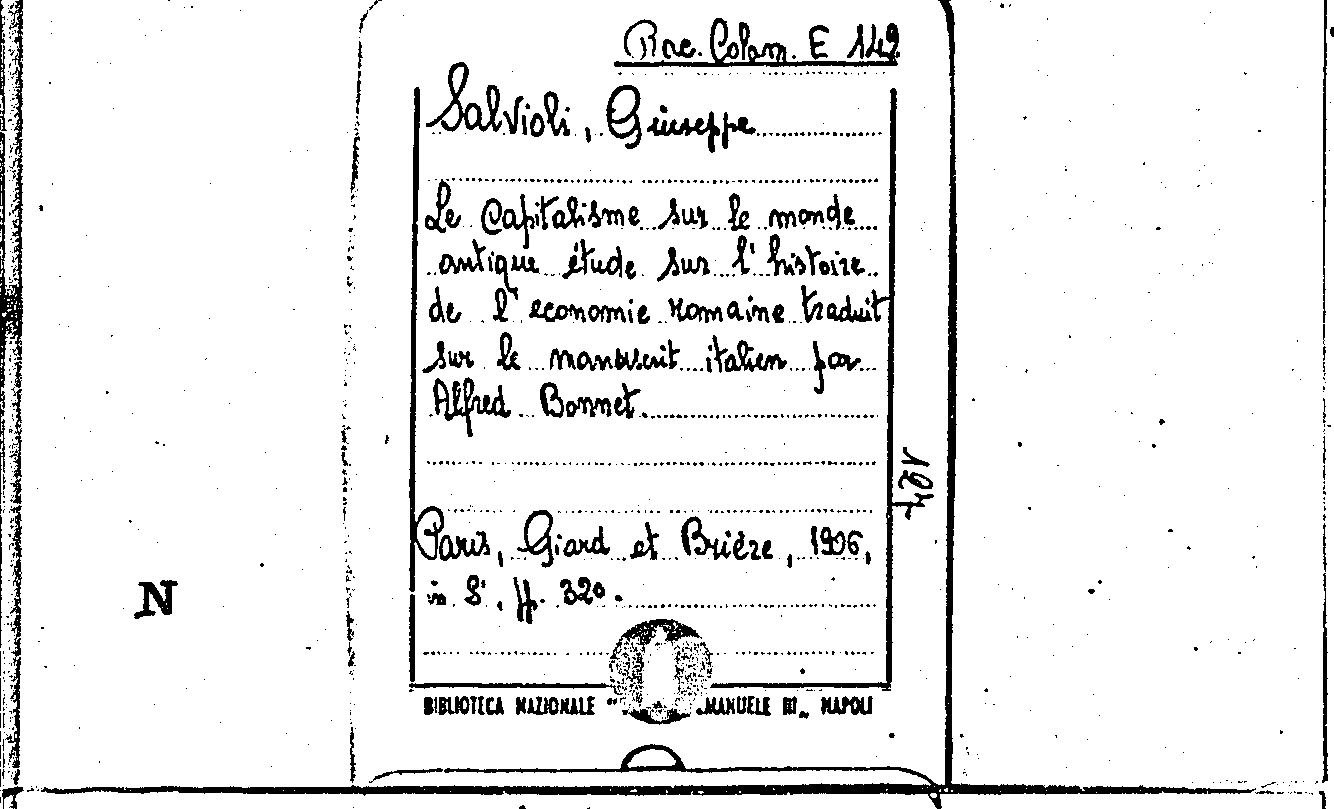 Rac. Colom. E 142
Salvioli, Giuseppe
Le Capitalisme sur le monde
antique étude sur l'histoire
de l'economie romaine traduit
sur le manuscrit italien par
Alfred Bonnet.
Paris, Giard et Brière, 1906,
in 8°, pp. 320.
N
BIBLIOTECA NAZIONALE "MANUELE III„ NAPOLI